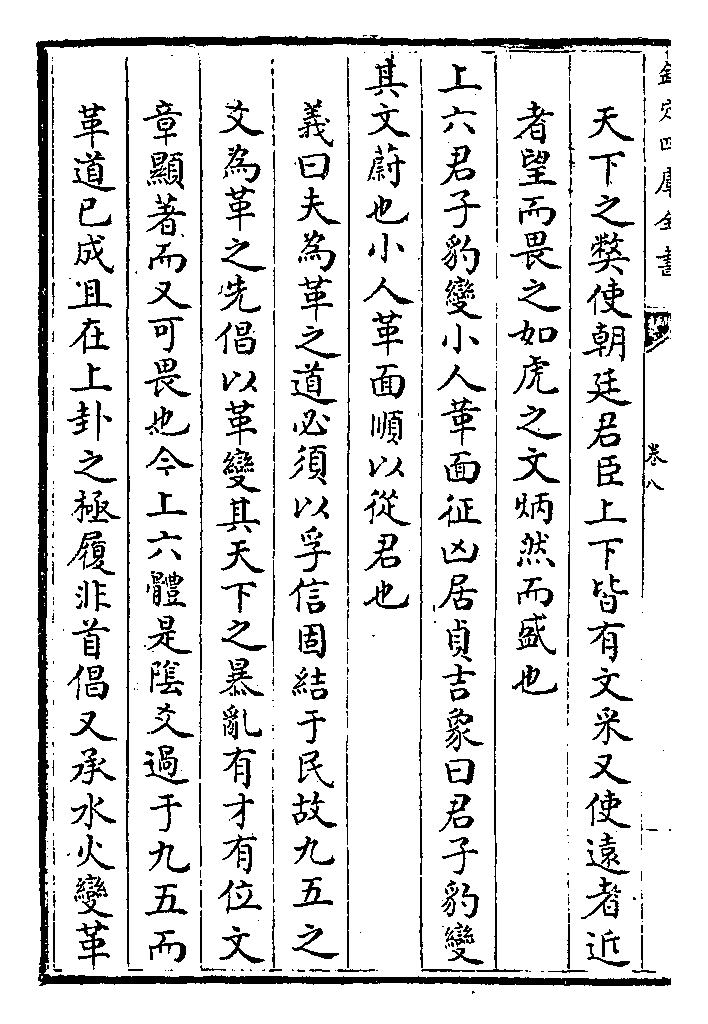 欽定四庫全書
卷八
天下之獘使朝廷君臣上下皆有文采又使遠者近
者望而畏之如虎之文炳然而盛也
上六君子豹變小人革面征凶居貞吉象曰君子豹變
其文蔚也小人革面順以從君也
義曰夫為革之道必須以孚信固結于民故九五之
爻為革之先倡以革變其天下之暴亂有才有位文
章顯著而又可畏也今上六體是隂爻過于九五而
革道已成且在上卦之極履非首倡又承水火變革